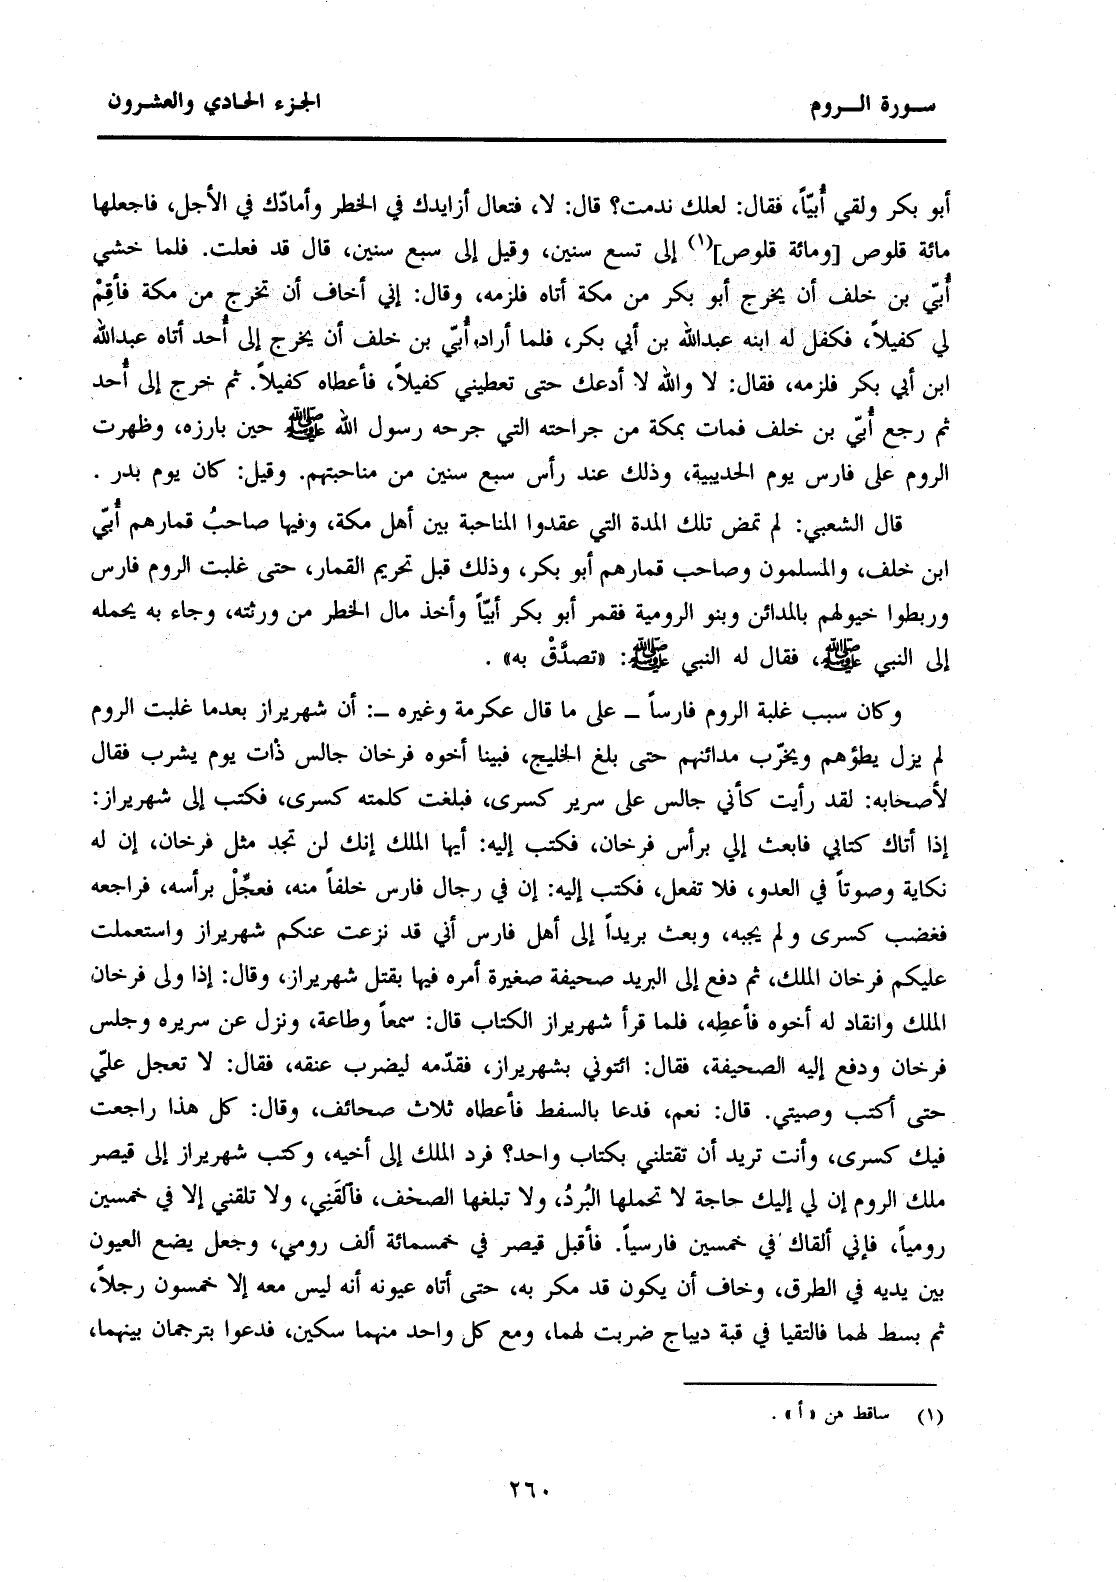 سورة الروم
الجزء الحادي والعشرون
أبو بكر ولقي أُبيّاً، فقال: لعلك ندمت؟ قال: لا، فتعال أزايدك في الخطر وأمادّك في الأجل، فاجعلها
مائة قلوص [ومائة قلوص](١) إلى تسع سنين، وقيل إلى سبع سنين، قال قد فعلت. فلما خشي
أُبيّ بن خلف أن يخرج أبو بكر من مكة أتاه فلزمه، وقال: إني أخاف أن تخرج من مكة فأقِمْ
لي كفيلاً، فكفل له ابنه عبدالله بن أبي بكر، فلما أراد أُبيّ بن خلف أن يخرج إلى أُحد أتاه عبدالله
ابن أبي بكر فلزمه، فقال: لا والله لا أدعك حتى تعطيني كفيلاً، فأعطاه كفيلاً. ثم خرج إلى أُحد
ثم رجع أُبيّ بن خلف فمات بمكة من جراحته التي جرحه رسول الله ﷺ حين بارزه، وظهرت
الروم على فارس يوم الحديبية، وذلك عند رأس سبع سنين من مناحبتهم. وقيل: كان يوم بدر .
قال الشعبي: لم تمض تلك المدة التي عقدوا المناحبة بين أهل مكة، وفيها صاحبُ قمارهم أُبيّ
ابن خلف، والمسلمون وصاحب قمارهم أبو بكر، وذلك قبل تحريم القمار، حتى غلبت الروم فارس
وربطوا خيولهم بالمدائن وبنو الرومية فقمر أبو بكر أبيّاً وأخذ مال الخطر من ورثته، وجاء به يحمله
إلى النبي ﷺ، فقال له النبي ﷺ: «تصدَّقْ به» .
وكان سبب غلبة الروم فارساً ــ على ما قال عكرمة وغيره ــ: أن شهريراز بعدما غلبت الروم
لم يزل يطؤهم ويخرّب مدائنهم حتى بلغ الخليج، فبينا أخوه فرخان جالس ذات يوم يشرب فقال
لأصحابه: لقد رأيت كأني جالس على سرير كسرى، فبلغت كلمته كسرى، فكتب إلى شهريراز:
إذا أتاك كتابي فابعث إلي برأس فرخان، فكتب إليه: أيها الملك إنك لن تجد مثل فرخان، إن له
نكاية وصوتاً في العدو، فلا تفعل، فكتب إليه: إن في رجال فارس خلفاً منه، فعجِّلْ برأسه، فراجعه
فغضب كسرى ولم يجبه، وبعث بريداً إلى أهل فارس أني قد نزعت عنكم شهريراز واستعملت
عليكم فرخان الملك، ثم دفع إلى البريد صحيفة صغيرة أمره فيها بقتل شهريراز، وقال: إذا ولى فرخان
الملك وانقاد له أخوه فأعطِه، فلما قرأ شهريراز الكتاب قال: سمعاً وطاعة، ونزل عن سريره وجلس
فرخان ودفع إليه الصحيفة، فقال: ائتوني بشهريراز، فقدّمه ليضرب عنقه، فقال: لا تعجل عليّ
حتى أكتب وصيتي. قال: نعم، فدعا بالسفط فأعطاه ثلاث صحائف، وقال: كل هذا راجعت
فيك كسرى، وأنت تريد أن تقتلني بكتاب واحد؟ فرد الملك إلى أخيه، وكتب شهريراز إلى قيصر
ملك الروم إن لي إليك حاجة لا تحملها البُردُ، ولا تبلغها الصخف، فآلقَنِي، ولا تلقني إلا في خمسين
رومياً، فإني ألقاك في خمسين فارسياً. فأقبل قيصر في خمسمائة ألف رومي، وجعل يضع العيون
بين يديه في الطرق، وخاف أن يكون قد مكر به، حتى أتاه عيونه أنه ليس معه إلا خمسون رجلاً،
ثم بسط لهما فالتقيا في قبة ديباج ضربت لهما، ومع كل واحد منهما سكين، فدعوا بترجمان بينهما،
(١) ساقط من «أ» .
٢٦٠